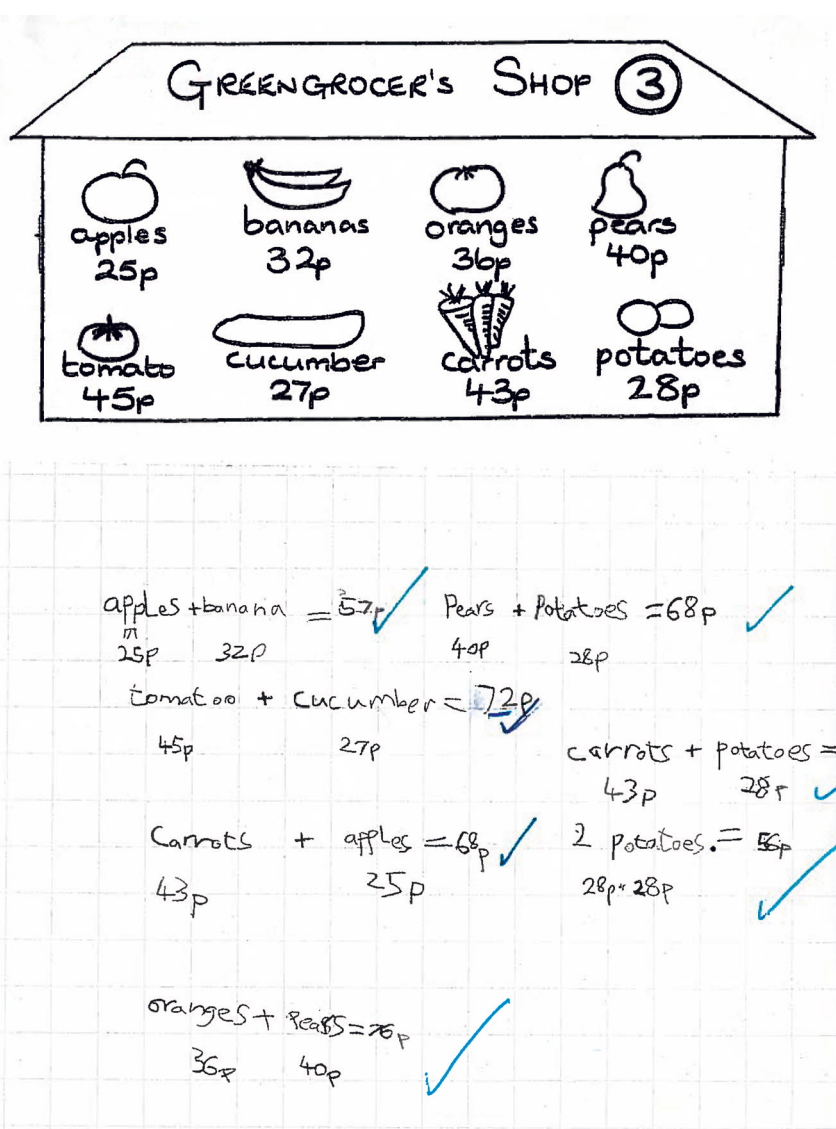 GREENGROCER'S SHOP 3
apples bananas oranges pears
25p 32p 36p 40p
tomato cucumber carrots potatoes
45p 27p 43p 28p
apples + banana = 57p
25p 32p
Pears + Potatoes = 68p
40p 28p
tomatoo + cucumber = 72p
45p 27p
carrots + potatoes =
43p 28p
Carrots + apples = 68p
43p 25p
2 potatoes. = 56p
28p 28p
oranges + pears = 76p
36p 40p